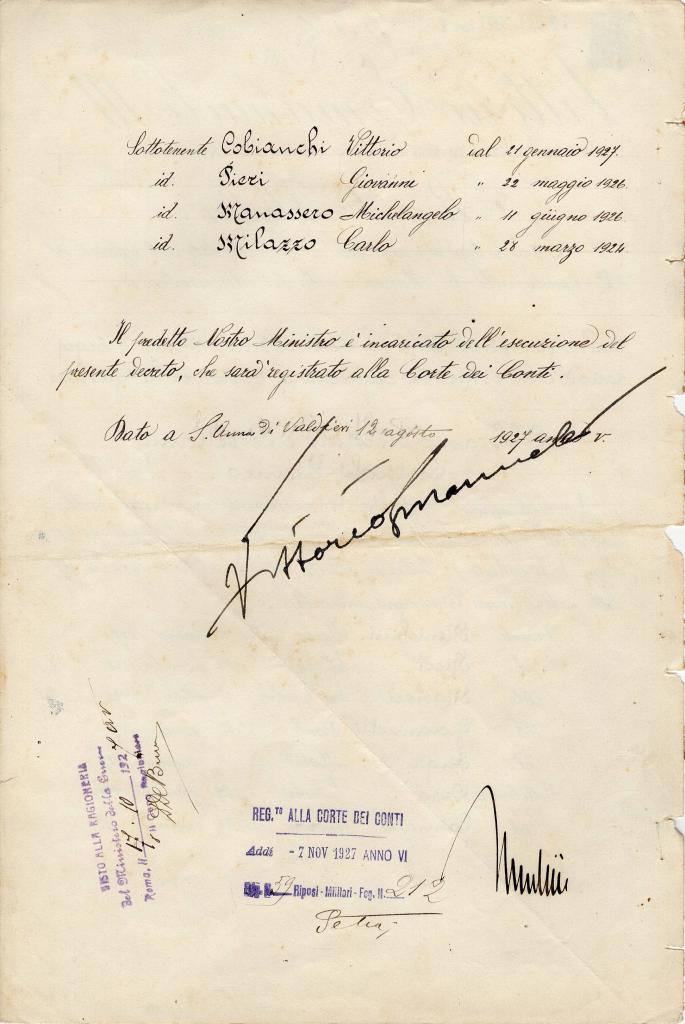 Sottotenente Cobianchi Vittorio dal 21 gennaio 1927.
id. Pieri Giovanni " 22 maggio 1926.
id. Manassero Michelangelo " 11 giugno 1926.
id. Milazzo Carlo " 28 marzo 1924.
Il predetto Nostro Ministro è incaricato dell'esecuzione del
presente decreto, che sarà registrato alla Corte dei Conti.
Dato a S. Anna di Valdieri 12 agosto 1927 anno V.
Vittorio Emanuele
VISTO ALLA RAGIONERIA
del Ministero della Guerra
Roma, li 17.10 192
Il Capo Ragioniere
REG.TO ALLA CORTE DEI CONTI
Addì - 7 NOV 1927 ANNO VI
59 Riposi - Militari - Fog. N. 212